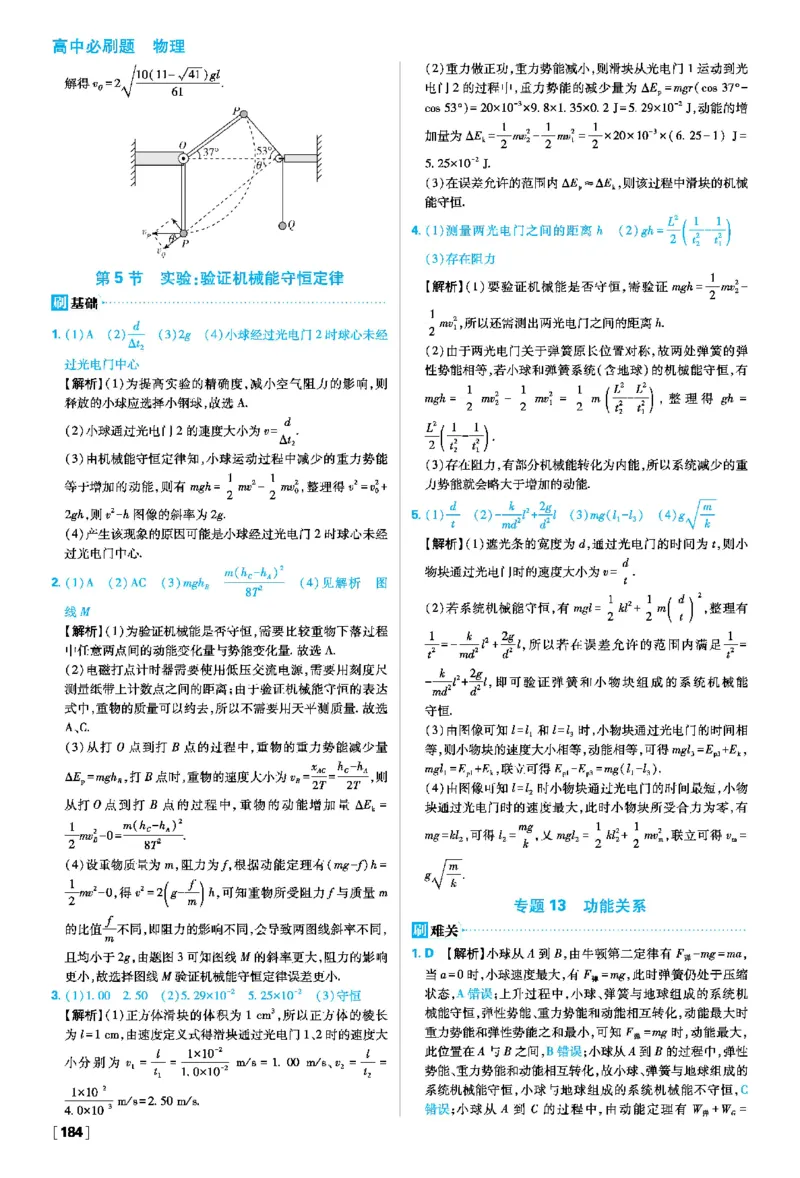 高中必刷题 物理
解得 v₀=2√(10(11-√41)gl/61).
P
O
37°
53°
θ
v_P
θ
P
v_Q
Q
第5节 实验:验证机械能守恒定律
刷 基础
1. (1)A (2) d/Δt₂ (3)2g (4)小球经过光电门2时球心未经
过光电门中心
【解析】(1)为提高实验的精确度,减小空气阻力的影响,则
释放的小球应选择小钢球,故选A.
(2)小球通过光电门2的速度大小为v= d/Δt₂.
(3)由机械能守恒定律知,小球运动过程中减少的重力势能
等于增加的动能,则有 mgh= 1/2 mv²- 1/2 mv₀²,整理得 v²=v₀²+
2gh,则 v²-h 图像的斜率为2g.
(4)产生该现象的原因可能是小球经过光电门2时球心未经
过光电门中心.
2. (1)A (2)AC (3)mgh_B m(h_C-h_A)²/8T² (4)见解析 图
线M
【解析】(1)为验证机械能是否守恒,需要比较重物下落过程
中任意两点间的动能变化量与势能变化量.故选A.
(2)电磁打点计时器需要使用低压交流电源,需要用刻度尺
测量纸带上计数点之间的距离;由于验证机械能守恒的表达
式中,重物的质量可以约去,所以不需要用天平测质量.故选
A、C.
(3)从打O点到打B点的过程中,重物的重力势能减少量
ΔE_p=mgh_B,打B点时,重物的速度大小为 v_B= x_AC/2T = (h_C-h_A)/2T,则
从打O点到打B点的过程中,重物的动能增加量 ΔE_k=
1/2 mv_B²-0= m(h_C-h_A)²/8T².
(4)设重物质量为m,阻力为f,根据动能定理有(mg-f)h=
1/2 mv²-0,得 v²=2(g- f/m)h,可知重物所受阻力f与质量m
的比值 f/m 不同,即阻力的影响不同,会导致两图线斜率不同,
且均小于2g,由题图3可知图线M的斜率更大,阻力的影响
更小,故选择图线M验证机械能守恒定律误差更小.
3. (1)1.00 2.50 (2)5.29×10⁻² 5.25×10⁻² (3)守恒
【解析】(1)正方体滑块的体积为1 cm³,所以正方体的棱长
为l=1 cm,由速度定义式得滑块通过光电门1、2时的速度大
小分别为 v₁= l/t₁ = 1×10⁻²/1.0×10⁻² m/s=1.00 m/s、v₂= l/t₂ =
1×10⁻²/4.0×10⁻³ m/s=2.50 m/s.
[184]
(2)重力做正功,重力势能减小,则滑块从光电门1运动到光
电门2的过程中,重力势能的减少量为 ΔE_p=mgr(cos 37°-
cos 53°)=20×10⁻³×9.8×1.35×0.2 J=5.29×10⁻² J,动能的增
加量为 ΔE_k= 1/2 mv₂²- 1/2 mv₁²= 1/2 ×20×10⁻³×(6.25-1) J=
5.25×10⁻² J.
(3)在误差允许的范围内 ΔE_p≈ΔE_k,则该过程中滑块的机械
能守恒.
4. (1)测量两光电门之间的距离h (2)gh= L²/2 (1/t₂² - 1/t₁²)
(3)存在阻力
【解析】(1)要验证机械能是否守恒,需验证 mgh= 1/2 mv₂²-
1/2 mv₁²,所以还需测出两光电门之间的距离h.
(2)由于两光电门关于弹簧原长位置对称,故两处弹簧的弹
性势能相等,若小球和弹簧系统(含地球)的机械能守恒,有
mgh= 1/2 mv₂² - 1/2 mv₁² = 1/2 m(L²/t₂² - L²/t₁²),整理得 gh=
L²/2 (1/t₂² - 1/t₁²).
(3)存在阻力,有部分机械能转化为内能,所以系统减少的重
力势能就会略大于增加的动能.
5. (1) d/t (2) - k/md² l²+ 2g/d² l (3)mg(l₁-l₃) (4)g√(m/k)
【解析】(1)遮光条的宽度为d,通过光电门的时间为t,则小
物块通过光电门时的速度大小为v= d/t.
(2)若系统机械能守恒,有 mgl= 1/2 kl²+ 1/2 m(d/t)²,整理有
1/t²=- k/md² l²+ 2g/d² l,所以若在误差允许的范围内满足 1/t²=
- k/md² l²+ 2g/d² l,即可验证弹簧和小物块组成的系统机械能
守恒.
(3)由图像可知 l=l₁ 和 l=l₃ 时,小物块通过光电门的时间相
等,则小物块的速度大小相等,动能相等,可得 mgl₃=E_p3+E_k,
mgl₁=E_p1+E_k,联立可得 E_p1-E_p3=mg(l₁-l₃).
(4)由图像可知 l=l₂ 时小物块通过光电门的时间最短,小物
块通过光电门时的速度最大,此时小物块所受合力为零,有
mg=kl₂,可得 l₂= mg/k,又 mgl₂= 1/2 kl₂²+ 1/2 mv_m²,联立可得 v_m=
g√(m/k).
专题13 功能关系
刷 难关
1. D 【解析】小球从A到B,由牛顿第二定律有 F弹-mg=ma,
当a=0时,小球速度最大,有 F弹=mg,此时弹簧仍处于压缩
状态,A错误;上升过程中,小球、弹簧与地球组成的系统机
械能守恒,弹性势能、重力势能和动能相互转化,动能最大时
重力势能和弹性势能之和最小,可知 F弹=mg 时,动能最大,
此位置在A与B之间,B错误;小球从A到B的过程中,弹性
势能、重力势能和动能相互转化,故小球、弹簧与地球组成的
系统机械能守恒,小球与地球组成的系统机械能不守恒,C
错误;小球从A到C的过程中,由动能定理有 W弹+W_G=